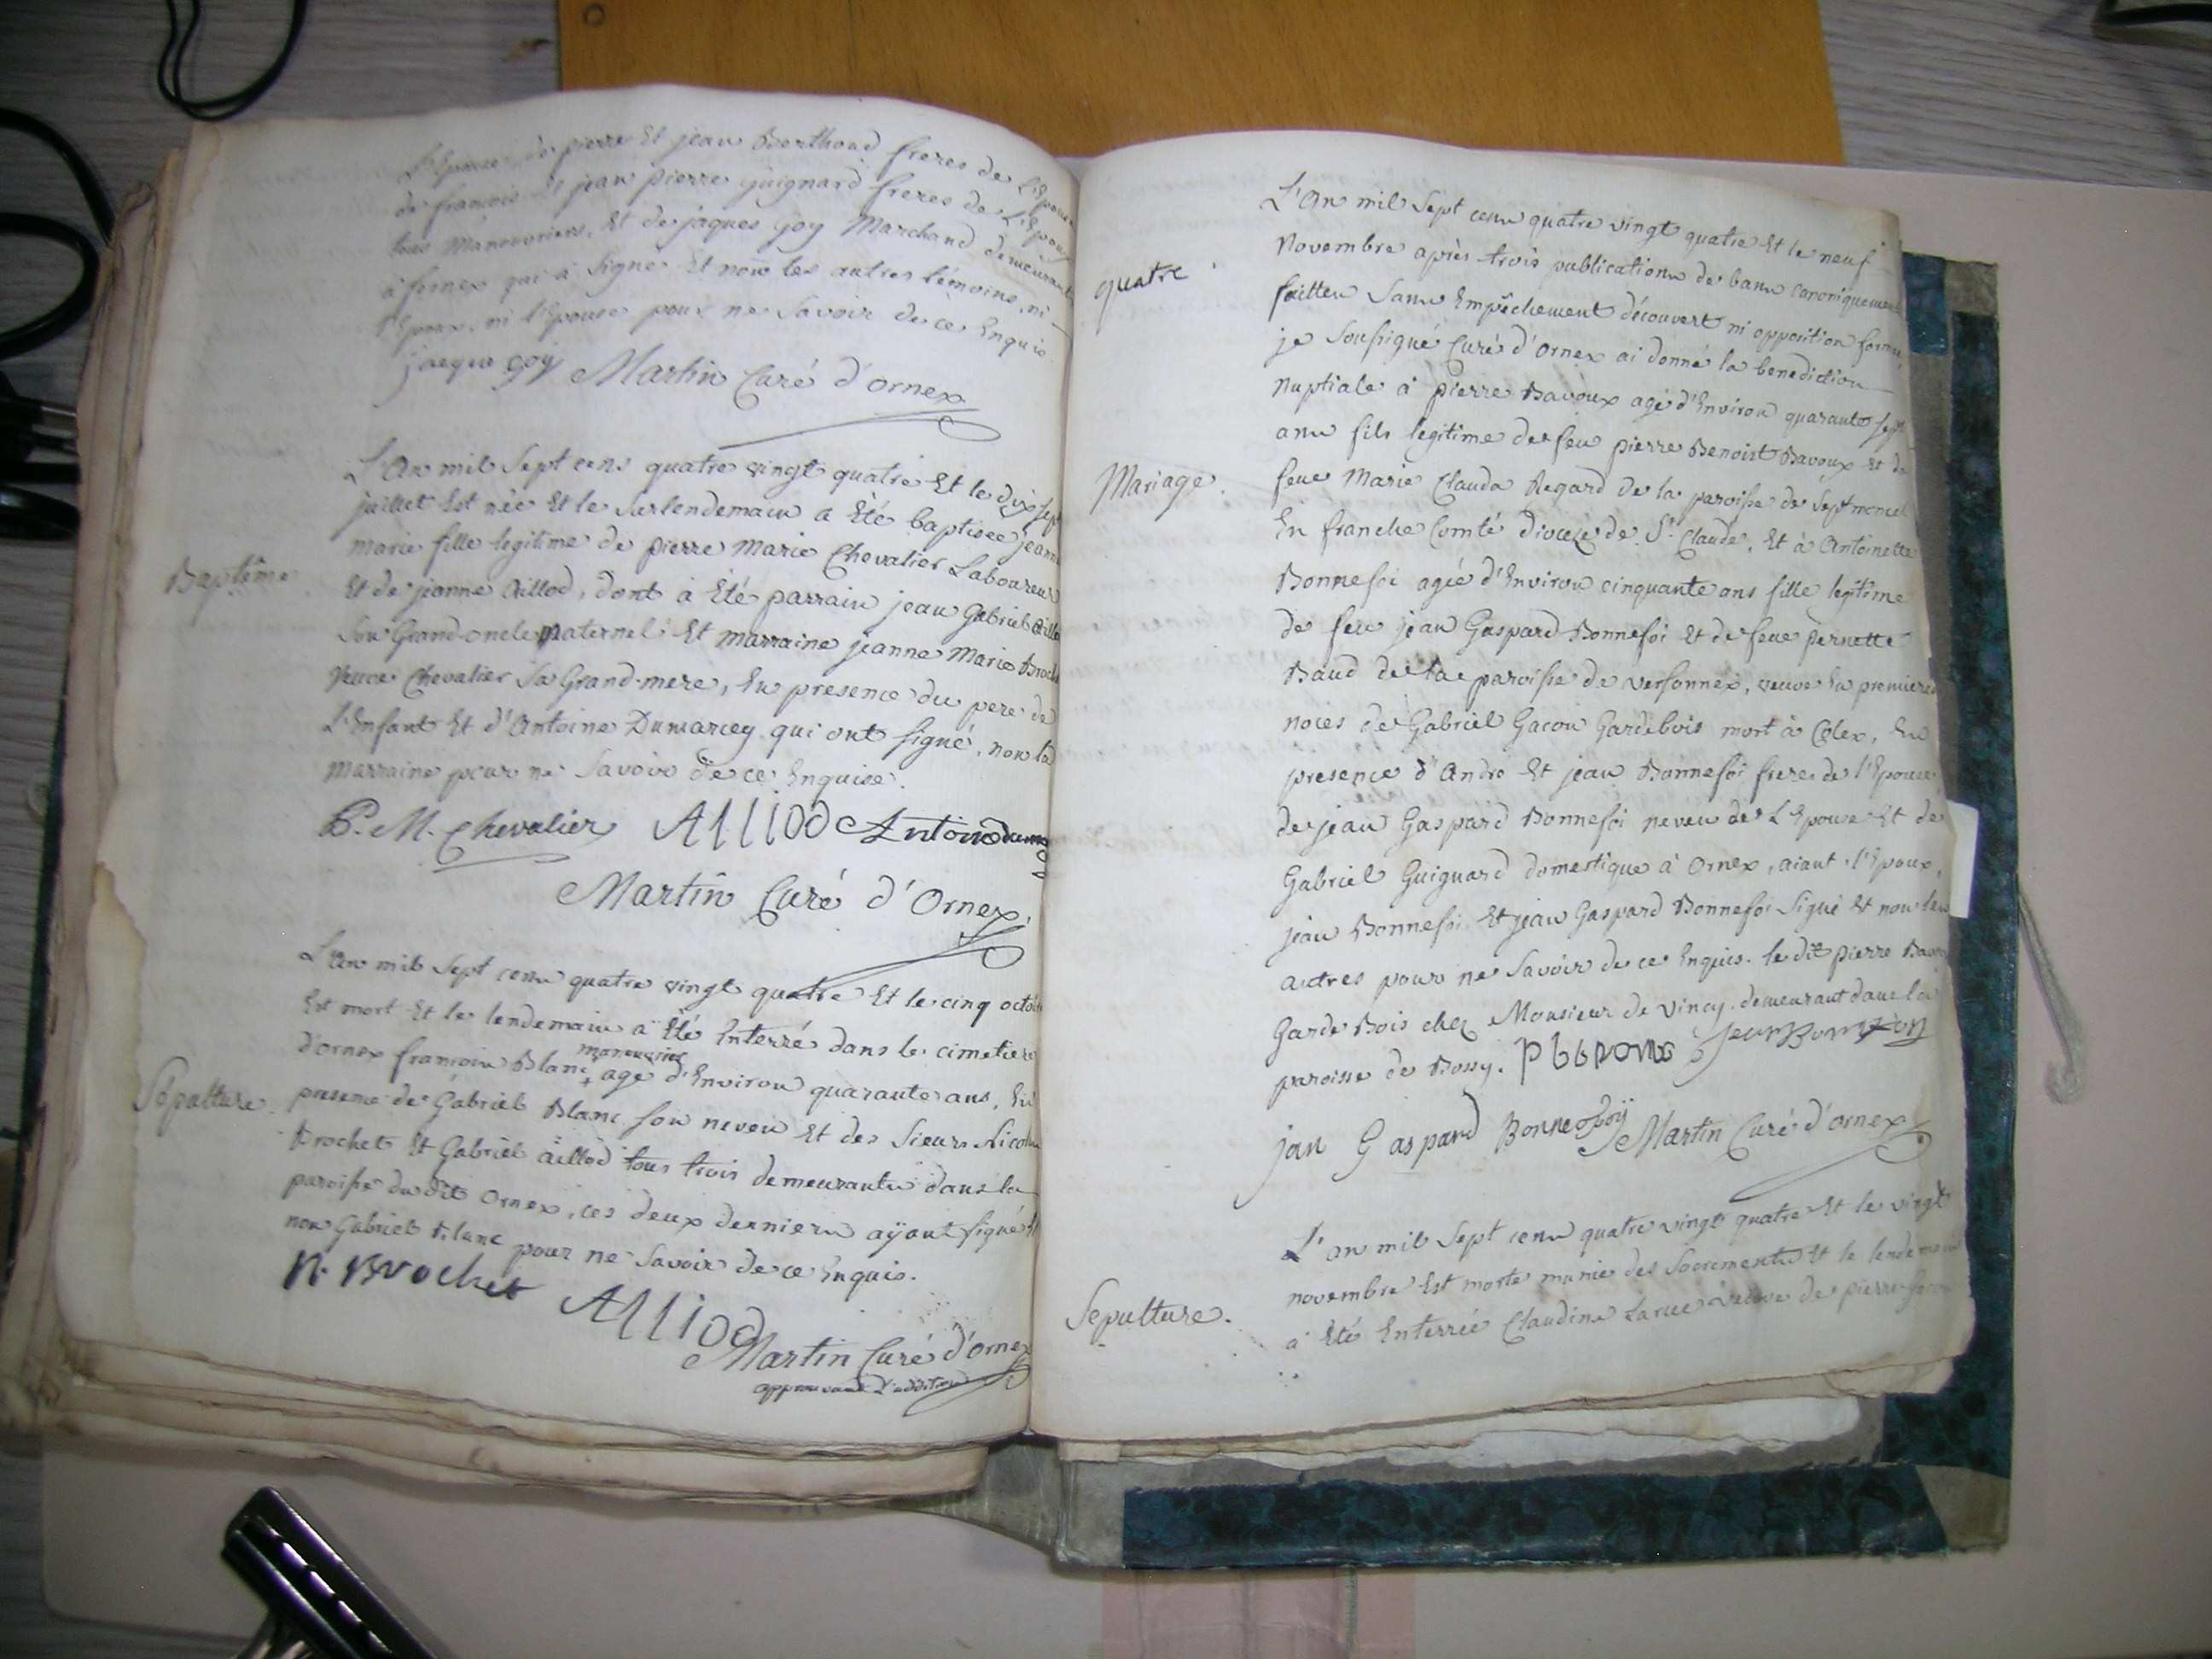 L'Epouse, de pierre Et jean Berthoud freres de L'Epouse
de francois Et jean pierre guignard freres de L'Epoux
tous Manouvriers, Et de jaques Goy Marchand demeurant
à fornex qui a signé Et non les autres témoins, ni
l'Epoux, ni l'Epouse pour ne Savoir de ce Enquis.
jacque goy Martin Curé d'ornex
L'An mil Sept cens quatre vingt quatre Et le dix sept
juillet Est née Et le Surlendemain a Eté baptisée jeanne
marie fille legitime de pierre Marie Chevalier Laboureur
Baptême
Et de jeanne Aillod, dont à Eté parrain jean Gabriel Aillod
Son Grand-oncle maternel Et marraine jeanne Marie Brochet
veuve Chevalier Sa Grand-mere, En presence du pere de
L'Enfant Et d'Antoine Dumarcey qui ont signé, non la
marraine pour ne Savoir de ce Enquise.
P. M. Chevalier Alliod Antoine dumar
Martin Curé d'Ornex.
L'An mil Sept cens quatre vingt quatre Et le cinq octobre
Est mort Et le lendemain a Eté Enterré dans le cimetiere
manouvrier
d'ornex francois Blanc + agé d'Environ quarante ans, En
Sépulture.
presence de Gabriel Blanc son neveu Et des Sieurs Nicolas
Brochet Et Gabriel aillod tous trois demeurants dans la
paroisse du dit Ornex, ces deux derniers aÿant signé Et
non Gabriel Blanc pour ne Savoir de ce Enquis.
N. Brochet Alliod
Martin Curé d'ornex
approuvant L'addition
L'An mil Sept cens quatre vingt quatre Et le neuf
quatre
Novembre après trois publications de bans canoniquement
faittes Sans Empêchement découvert ni opposition formée
je Soussigné Curé d'Ornex ai donné la benediction
nuptiale à pierre Bavoux agé d'Environ quarante sept
ans fils legitime de feu pierre Benoist Bavoux Et de
Mariage.
feue Marie Clauda Regard de la paroisse de Septmoncel
En franche Comté diocèze de St. Claude, Et à Antoinette
Bonnefoi agée d'Environ cinquante ans fille legitime
de feu jean Gaspard Bonnefoi Et de feue pernette
Baud de la paroisse de versonnex, veuve En premieres
noces de Gabriel Gacon Gardebois mort à Colex, En
presence d'André Et jean Bonnefoi freres de l'Epouse
de jean Gaspard Bonnefoi neveu de L'Epouse Et de
Gabriel Guignard domestique à Ornex, aiant l'Epoux,
jean Bonnefoi Et jean Gaspard Bonnefoi Signé Et non les
autres pour ne Savoir de ce Enquis. le dit pierre Bavoux
Garde Bois chez Monsieur de Vincy demeurant dans la
paroisse de Bossy.
jan Gaspard Bonnefoÿ Martin Curé d'ornex
L'an mil Sept cens quatre vingt quatre Et le vingt
novembre Est morte munie des Sacrements Et le lendemain
Sepulture.
a Eté Enterrée Claudine Larue veuve de pierre